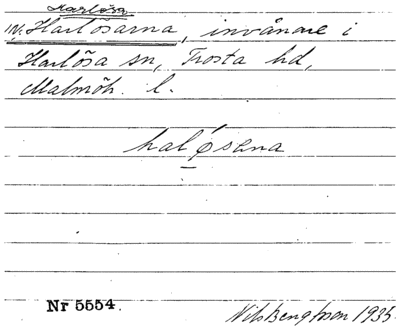 Harlösa
inv. Harlösarna, invånare i
Harlösa sn, Frosta hd,
Malmöh. l.
halǿsana
Nr 5554.
Nils Bengtsson 1935